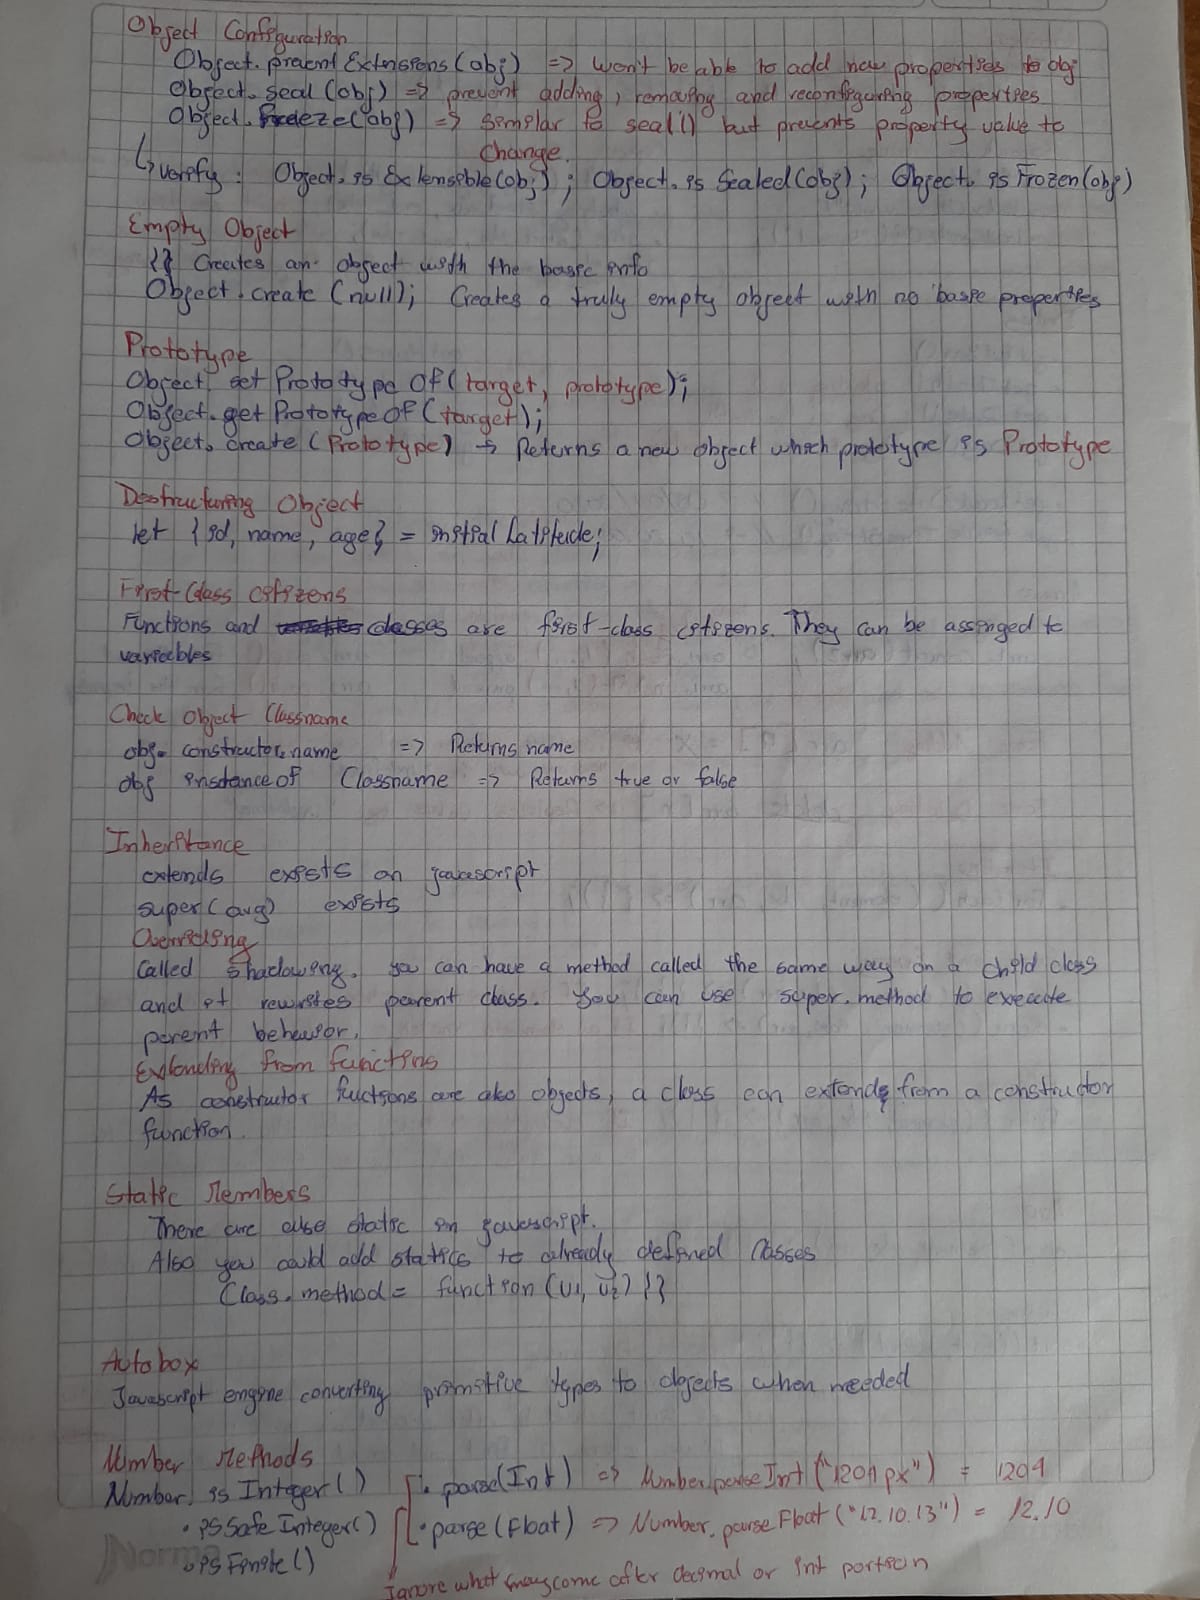 Object Configuration
Object.prevent Extensions(obj) => won't be able to add new properties to obj
Object.seal (obj) => prevent adding, removing and reconfiguring properties
Object.freeze(obj) => similar to seal() but prevents property value to
change.
↳ verify: Object.is Extensible(obj); Object.is Sealed(obj); Object.is Frozen(obj)
Empty Object
{} Creates an object with the basic info
Object.create(null); Creates a truly empty object with no basic properties
Prototype
Object.set Prototype Of(target, prototype);
Object.get Prototype Of(target);
Object.create(Prototype) → Returns a new object which prototype is Prototype
Destructuring Object
let {id, name, age} = initial Latitude;
First-Class citizens
Functions and classes are first-class citizens. They can be assinged to
variables
Check Object Classname
obj.constructor.name => Returns name
obj instance of Classname => Returns true or false
Inheritance
extends exists on javascript
super(arg) exists
Overriding
Called shadowing. You can have a method called the same way on a child class
and it rewrites parent class. You can use super.method to execute
parent behavior.
Extending from functions
As constructor fuctions are also objects, a class can extends from a constructor
function.
Static Members
There are also static in javascript.
Also you could add statics to already defined classes
Class.method = function (v1, v2) {}
Autobox
Javascript engine converting primitive types to objects when needed
Number Methods
Number.is Integer() .parse(Int) => Number.parse Int ("1201 px") = 1201
.isSafe Integer() .parse(Float) => Number.parse Float ("12.10.13") = 12.10
.isFinite()
Ignore what may come after decimal or int portion
Norma